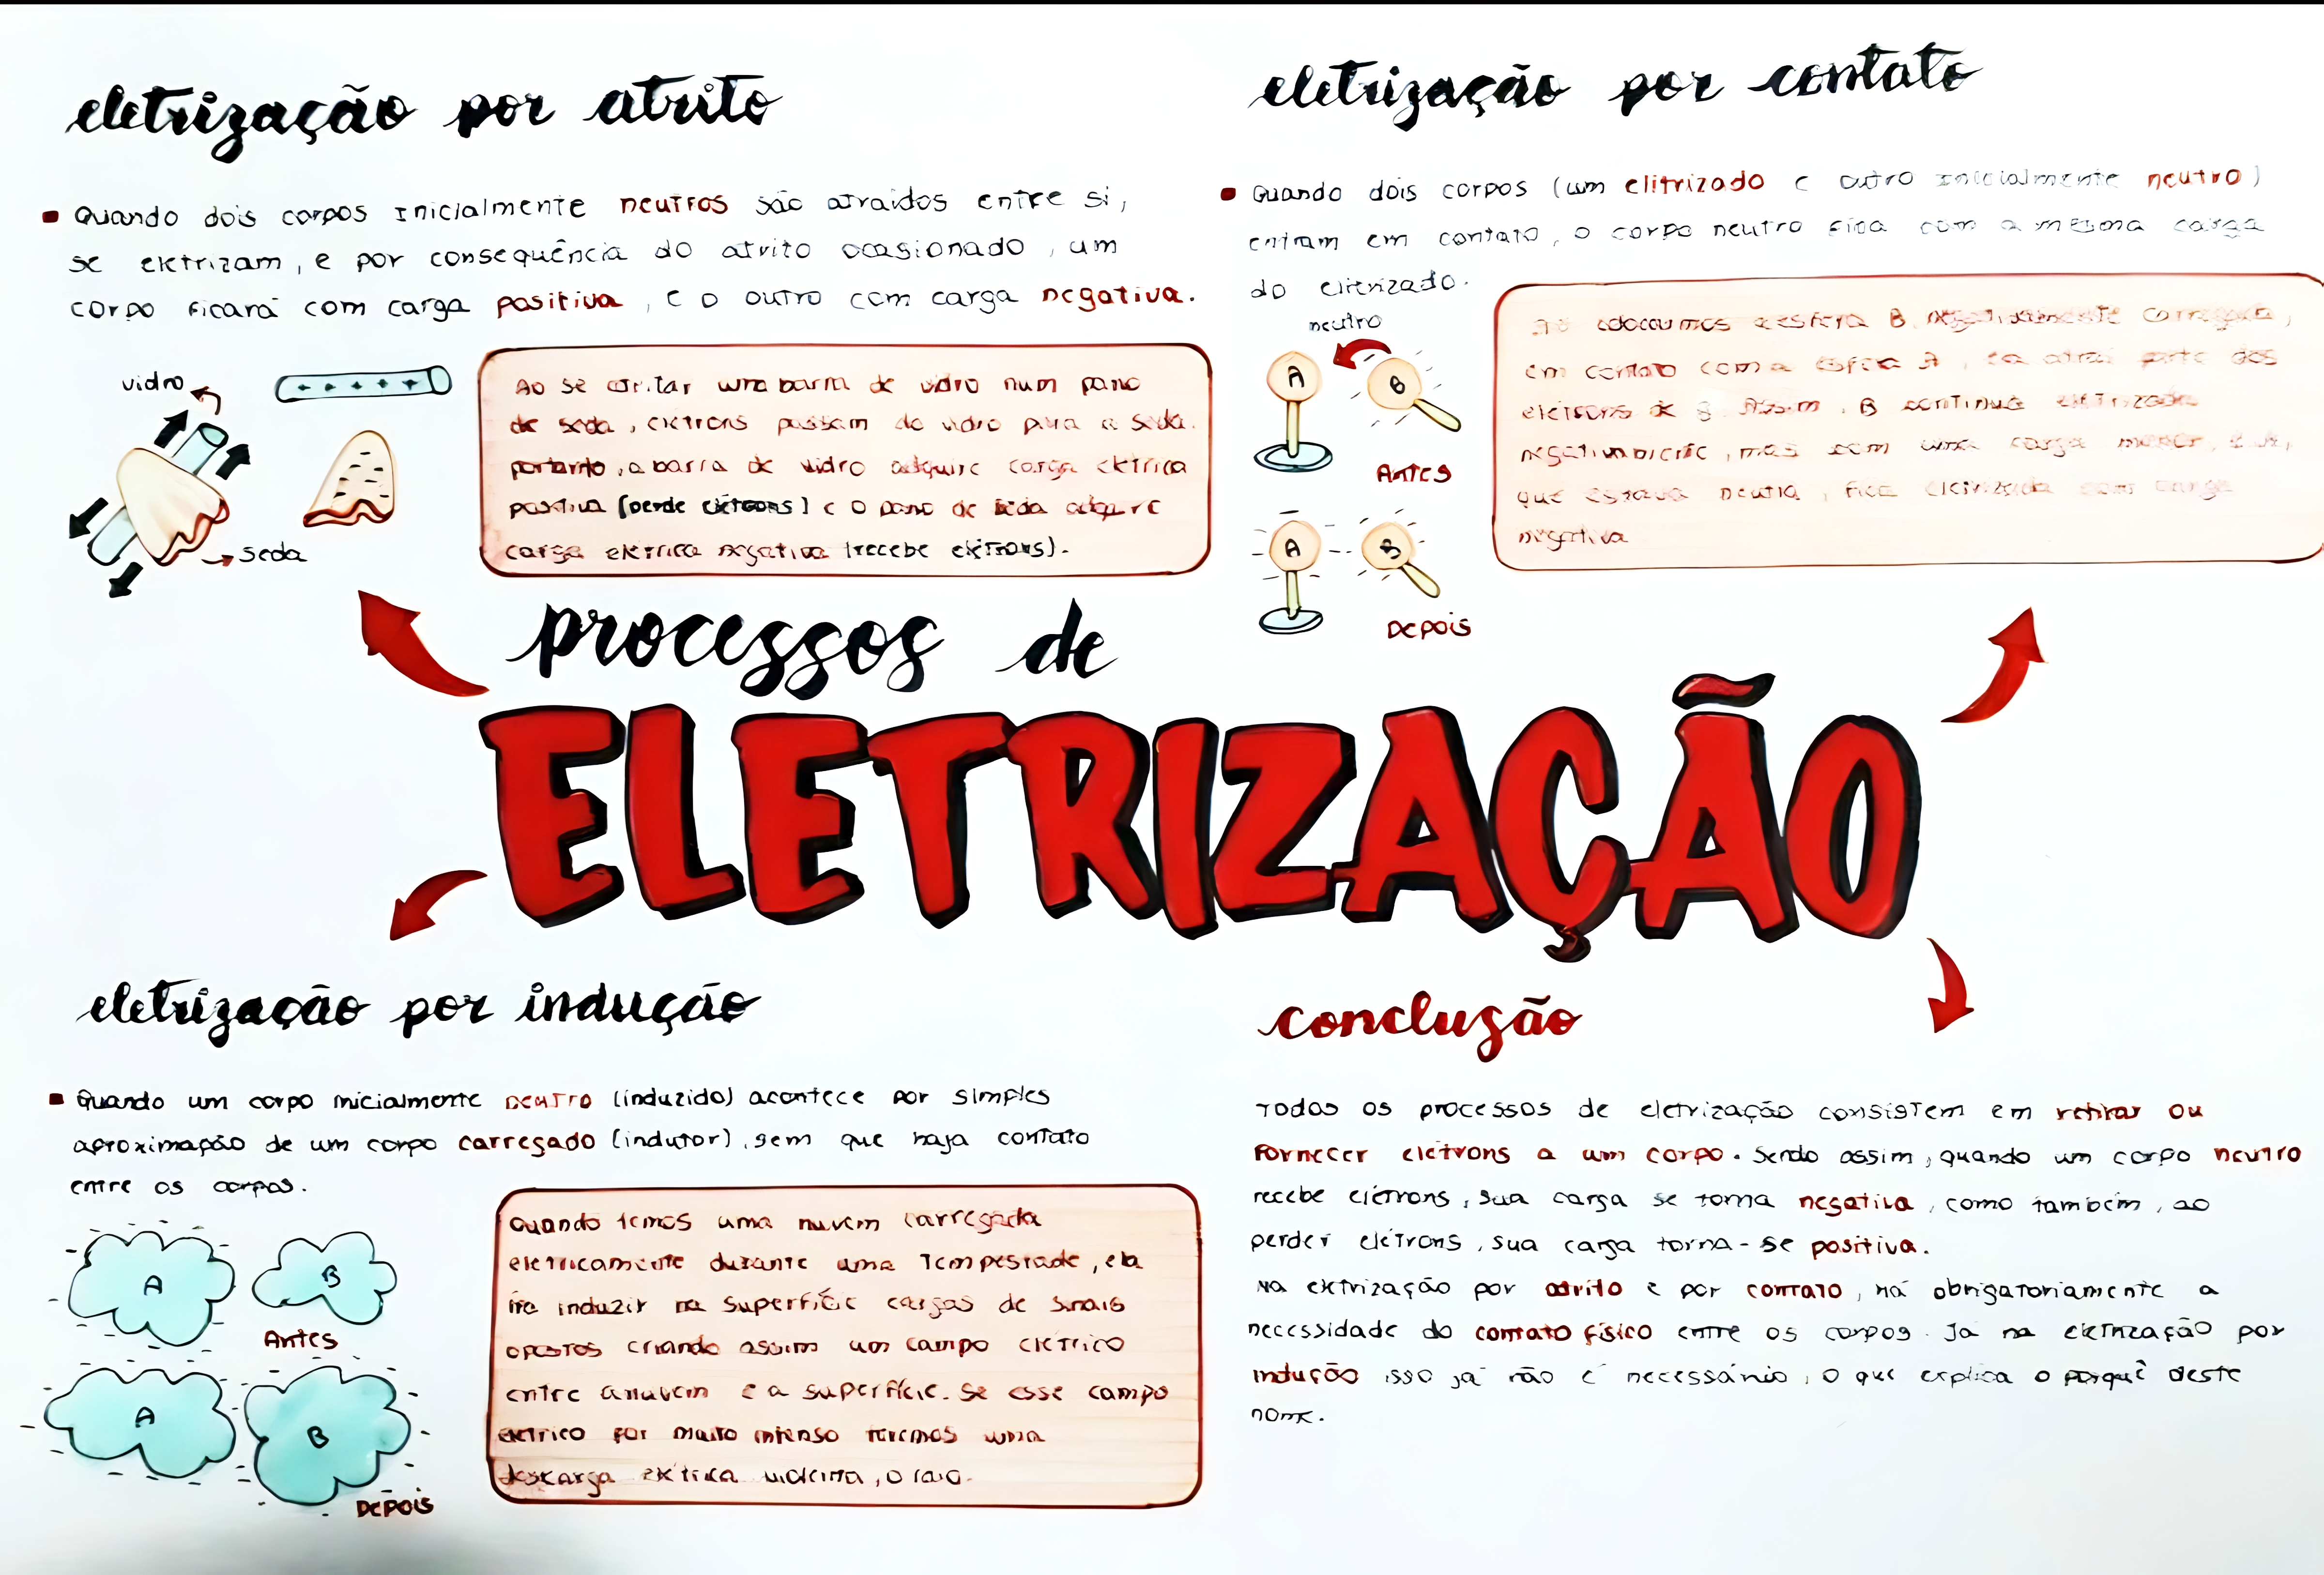 eletrização por atrito
Quando dois corpos inicialmente neutros são atraidos entre si,
se eletrizam, e por consequência do atrito ocasionado, um
corpo ficará com carga positiva, e o outro com carga negativa.
vidro
seda
Ao se atritar uma barra de vidro num pano
de seda, elétrons passam do vidro para a seda.
portanto, a barra de vidro adquire carga elétrica
positiva (perde elétrons) e o pano de seda adquire
carga elétrica negativa (recebe elétrons).
eletrização por contato
Quando dois corpos (um elitrizado e outro inicialmente neutro)
entram em contato, o corpo neutro fica com a mesma carga
do eletrizado.
neutro
A
B
Antes
A
B
Depois
colocarmos a esfera B negativamente carregada,
em contato com a esfera A, ela atrai parte dos
elétrons de B. Assim, B continua eletrizada
negativamente, mas com uma carga menor,
que estava neutra, fica eletrizada com carga
negativa
processos de
ELETRIZAÇÃO
eletrização por indução
Quando um corpo inicialmente neutro (induzido) acontece por simples
aproximação de um corpo carregado (indutor), sem que haja contato
entre os corpos.
A
B
Antes
A
B
Depois
Quando temos uma nuvem carregada
eletricamente durante uma tempestade, ela
ira induzir na superfície cargas de sinais
opostos criando assim um campo elétrico
entre a nuvem e a superfície. Se esse campo
elétrico for muito intenso teremos uma
descarga elétrica violenta, o raio.
conclusão
Todos os processos de eletrização consistem em retirar ou
fornecer elétrons a um corpo. Sendo assim, quando um corpo neutro
recebe elétrons, sua carga se torna negativa, como também, ao
perder elétrons, sua carga torna-se positiva.
Na eletrização por atrito e por contato, há obrigatoriamente a
necessidade do contato físico entre os corpos. Já na eletrização por
indução isso já não é necessário, o que explica o porquê deste
nome.